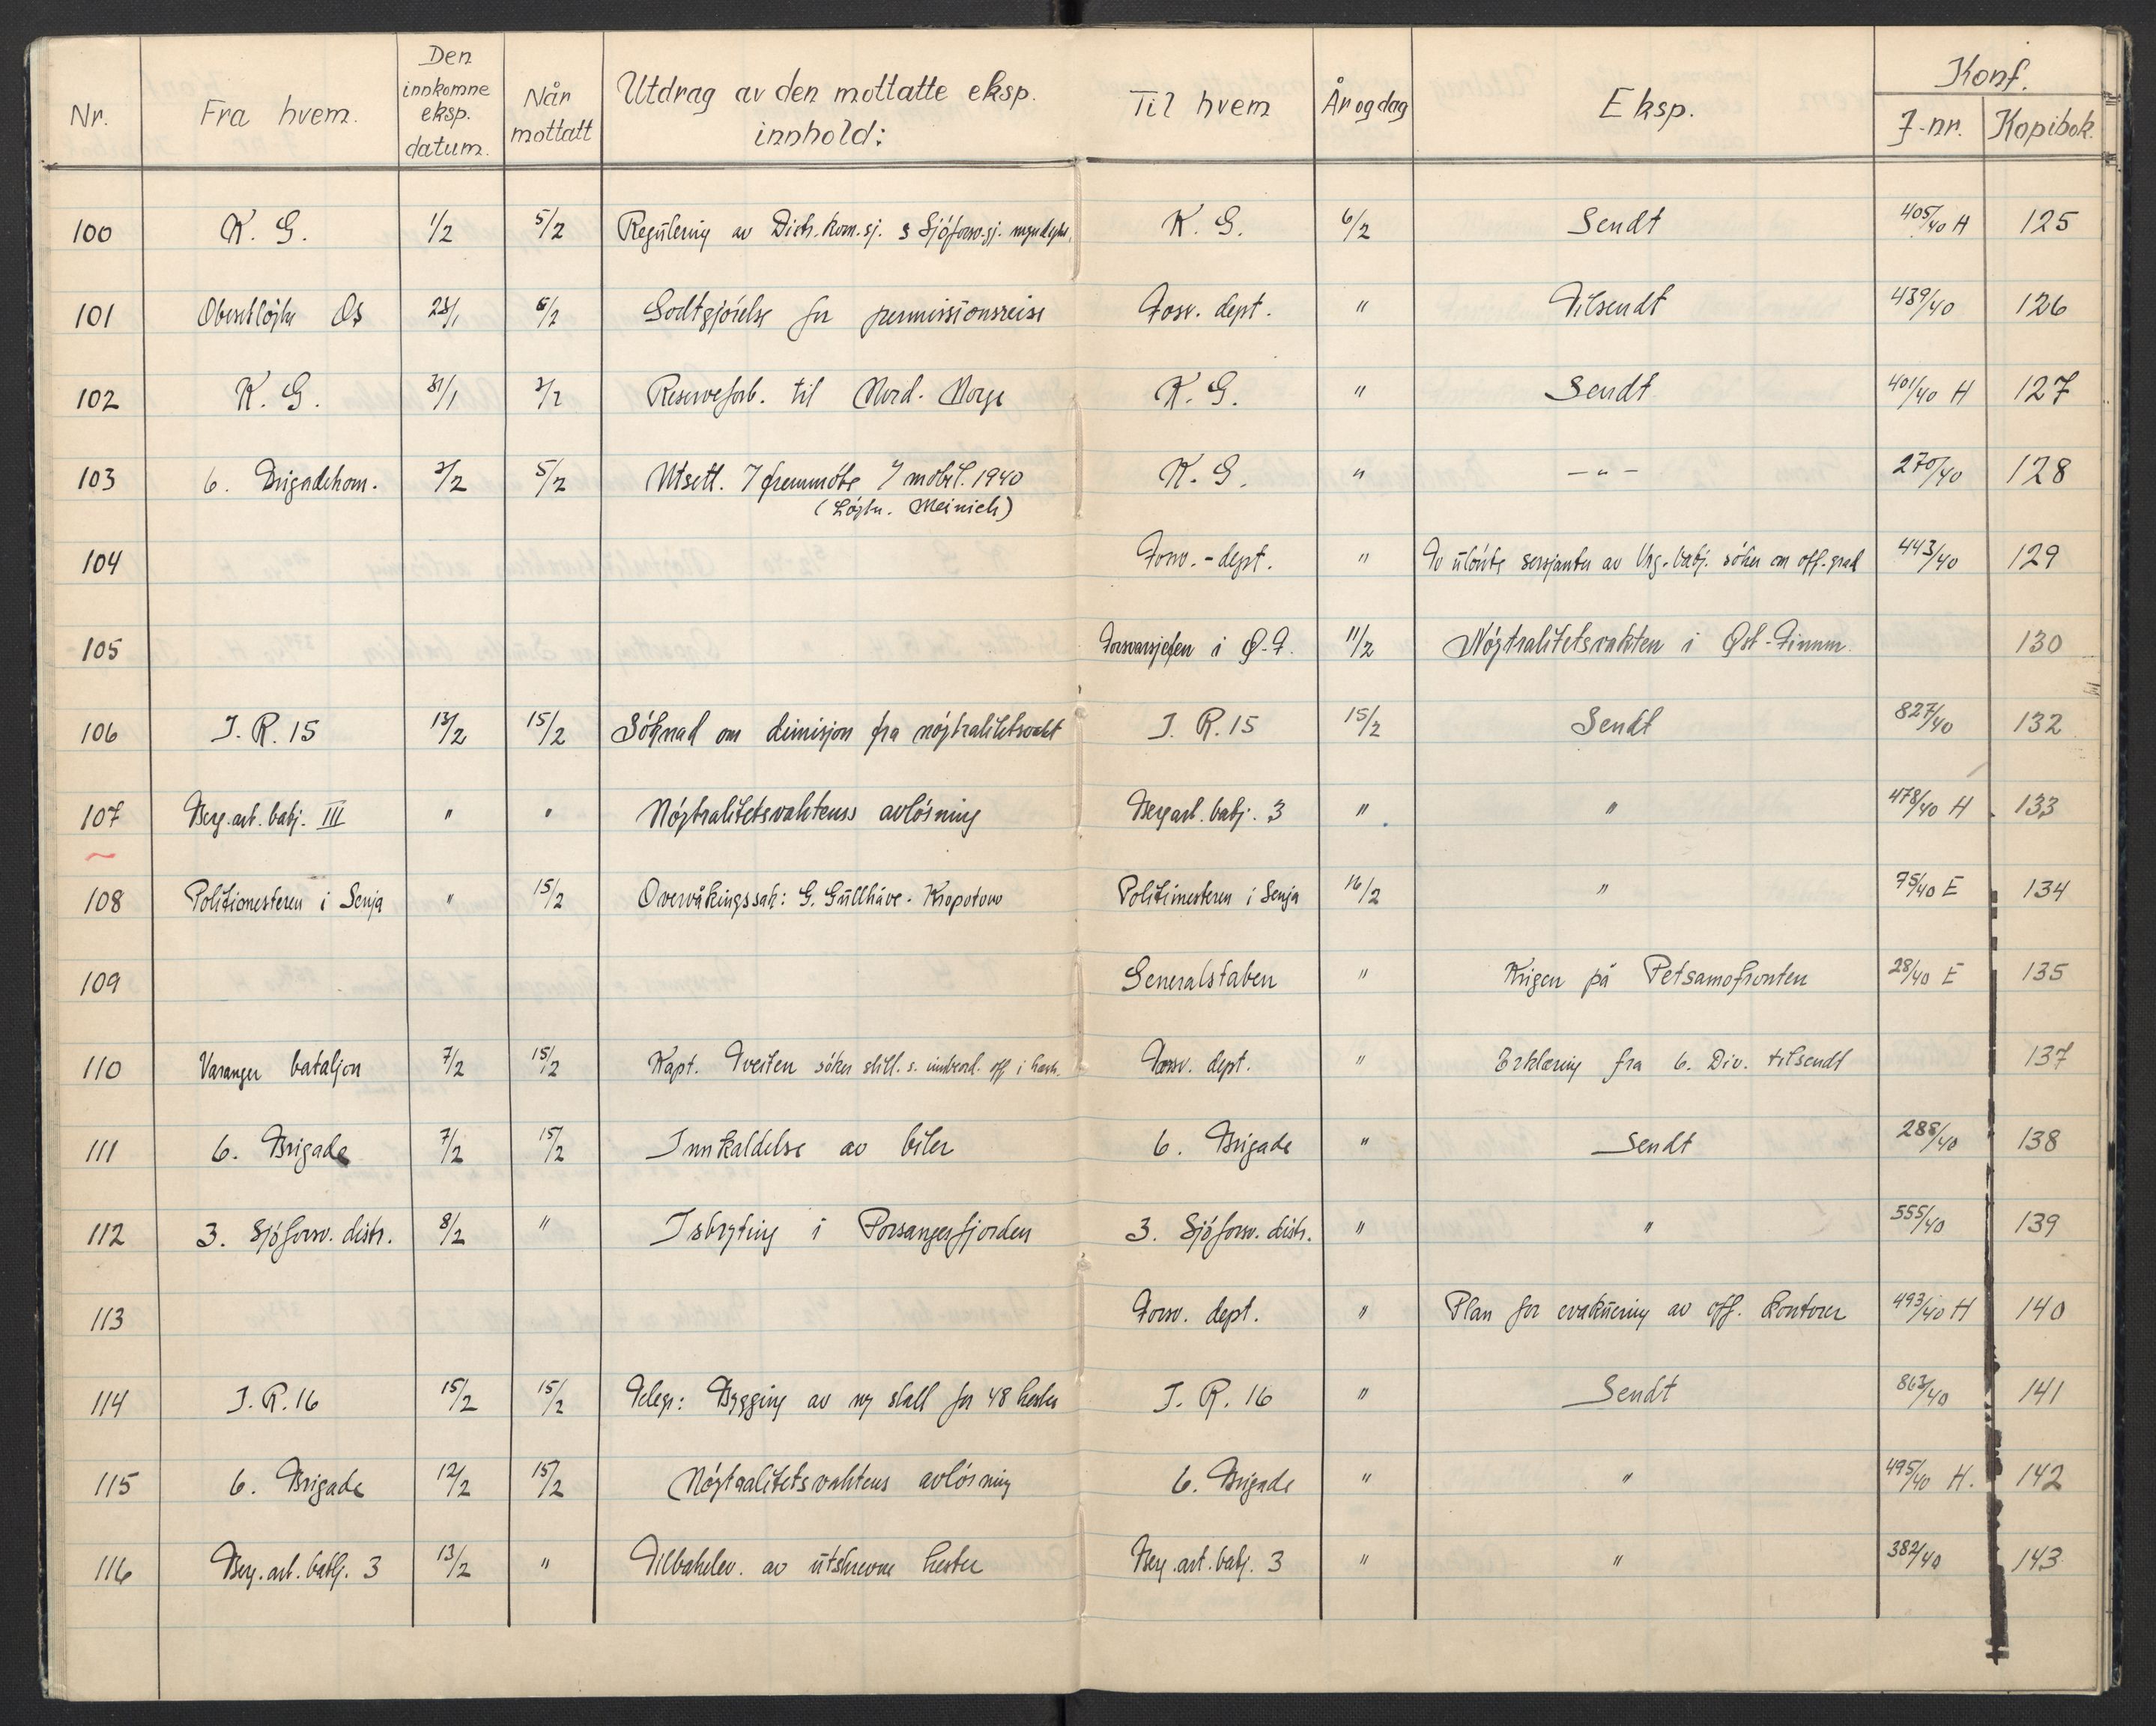 Nr. Fra hvem. Den innkomne eksp. datum. Når mottatt Utdrag av den mottatte eksp. innhold: Til hvem År og dag Eksp. Konf. J-nr. Kopibok.
100 K. G. 1/2 5/2 Regulering av Distr. kom. sj. s Sjöforsv. sj. K. G. 6/2 Sendt 405/40 H 125
101 Oberstlöjtn Os 6/2 Godtgjörelse for permissionsreise Forsv. dept. " Tilsendt 439/40 126
102 K. G. 31/1 Reserveforb. til Nord-Norge K. G. " Sendt 401/40 H 127
103 6. Brigadekom. 5/2 Utsett. 7 fremmöte 7 mobil. 1940 K. G. " - " - 270/40 128
(Löjtn. Meinich)
104 Forsv.-dept. " To utlærte sersjanter av Varg. batj. söker om off. grad 443/40 129
105 Forsvarssjefen i Ø-F. 11/2 Nöjtralitetsvakten i Øst-Finnm. 130
106 I. R. 15 13/2 15/2 Söknad om dimisjon fra nöjtralitetsvakt I. R. 15 15/2 Sendt 827/40 132
107 Berg. art. batj. III " " Nöjtralitetsvaktens avlösning Berg art. batj. 3 " " 478/40 H 133
108 Politimesteren i Senja " 15/2 Overvåkingssak: G. Gullhåve - Kropotovo Politimesteren i Senja 16/2 " 75/40 E 134
109 Generalstaben " Krigen på Petsamofronten 28/40 E 135
110 Varanger bataljon 7/2 15/2 Kapt. Tveiten söker still. s. off i Forsv. dept. " Erklæring fra 6. Div. tilsendt 137
111 6. Brigade 7/2 15/2 Innkaldelse av biler 6. Brigade " Sendt 288/40 138
112 3. Sjöforsv. distr. 8/2 " Isbryting i Porsangerfjorden 3. Sjöforsv. distr. " " 555/40 139
113 Forsv. dept. " Plan for evakuering av off. kontorer 493/40 H 140
114 I. R. 16 15/2 15/2 Telegr: Bygging av ny stall for 48 hester I. R. 16 " Sendt 863/40 141
115 6. Brigade 12/2 15/2 Nöjtralitetsvaktens avlösning 6. Brigade " " 495/40 H. 142
116 Berg. art. batlj. 3 13/2 " Tilbakelev. av utskrevne hester Berg. art. batj. 3 " " 382/40 143